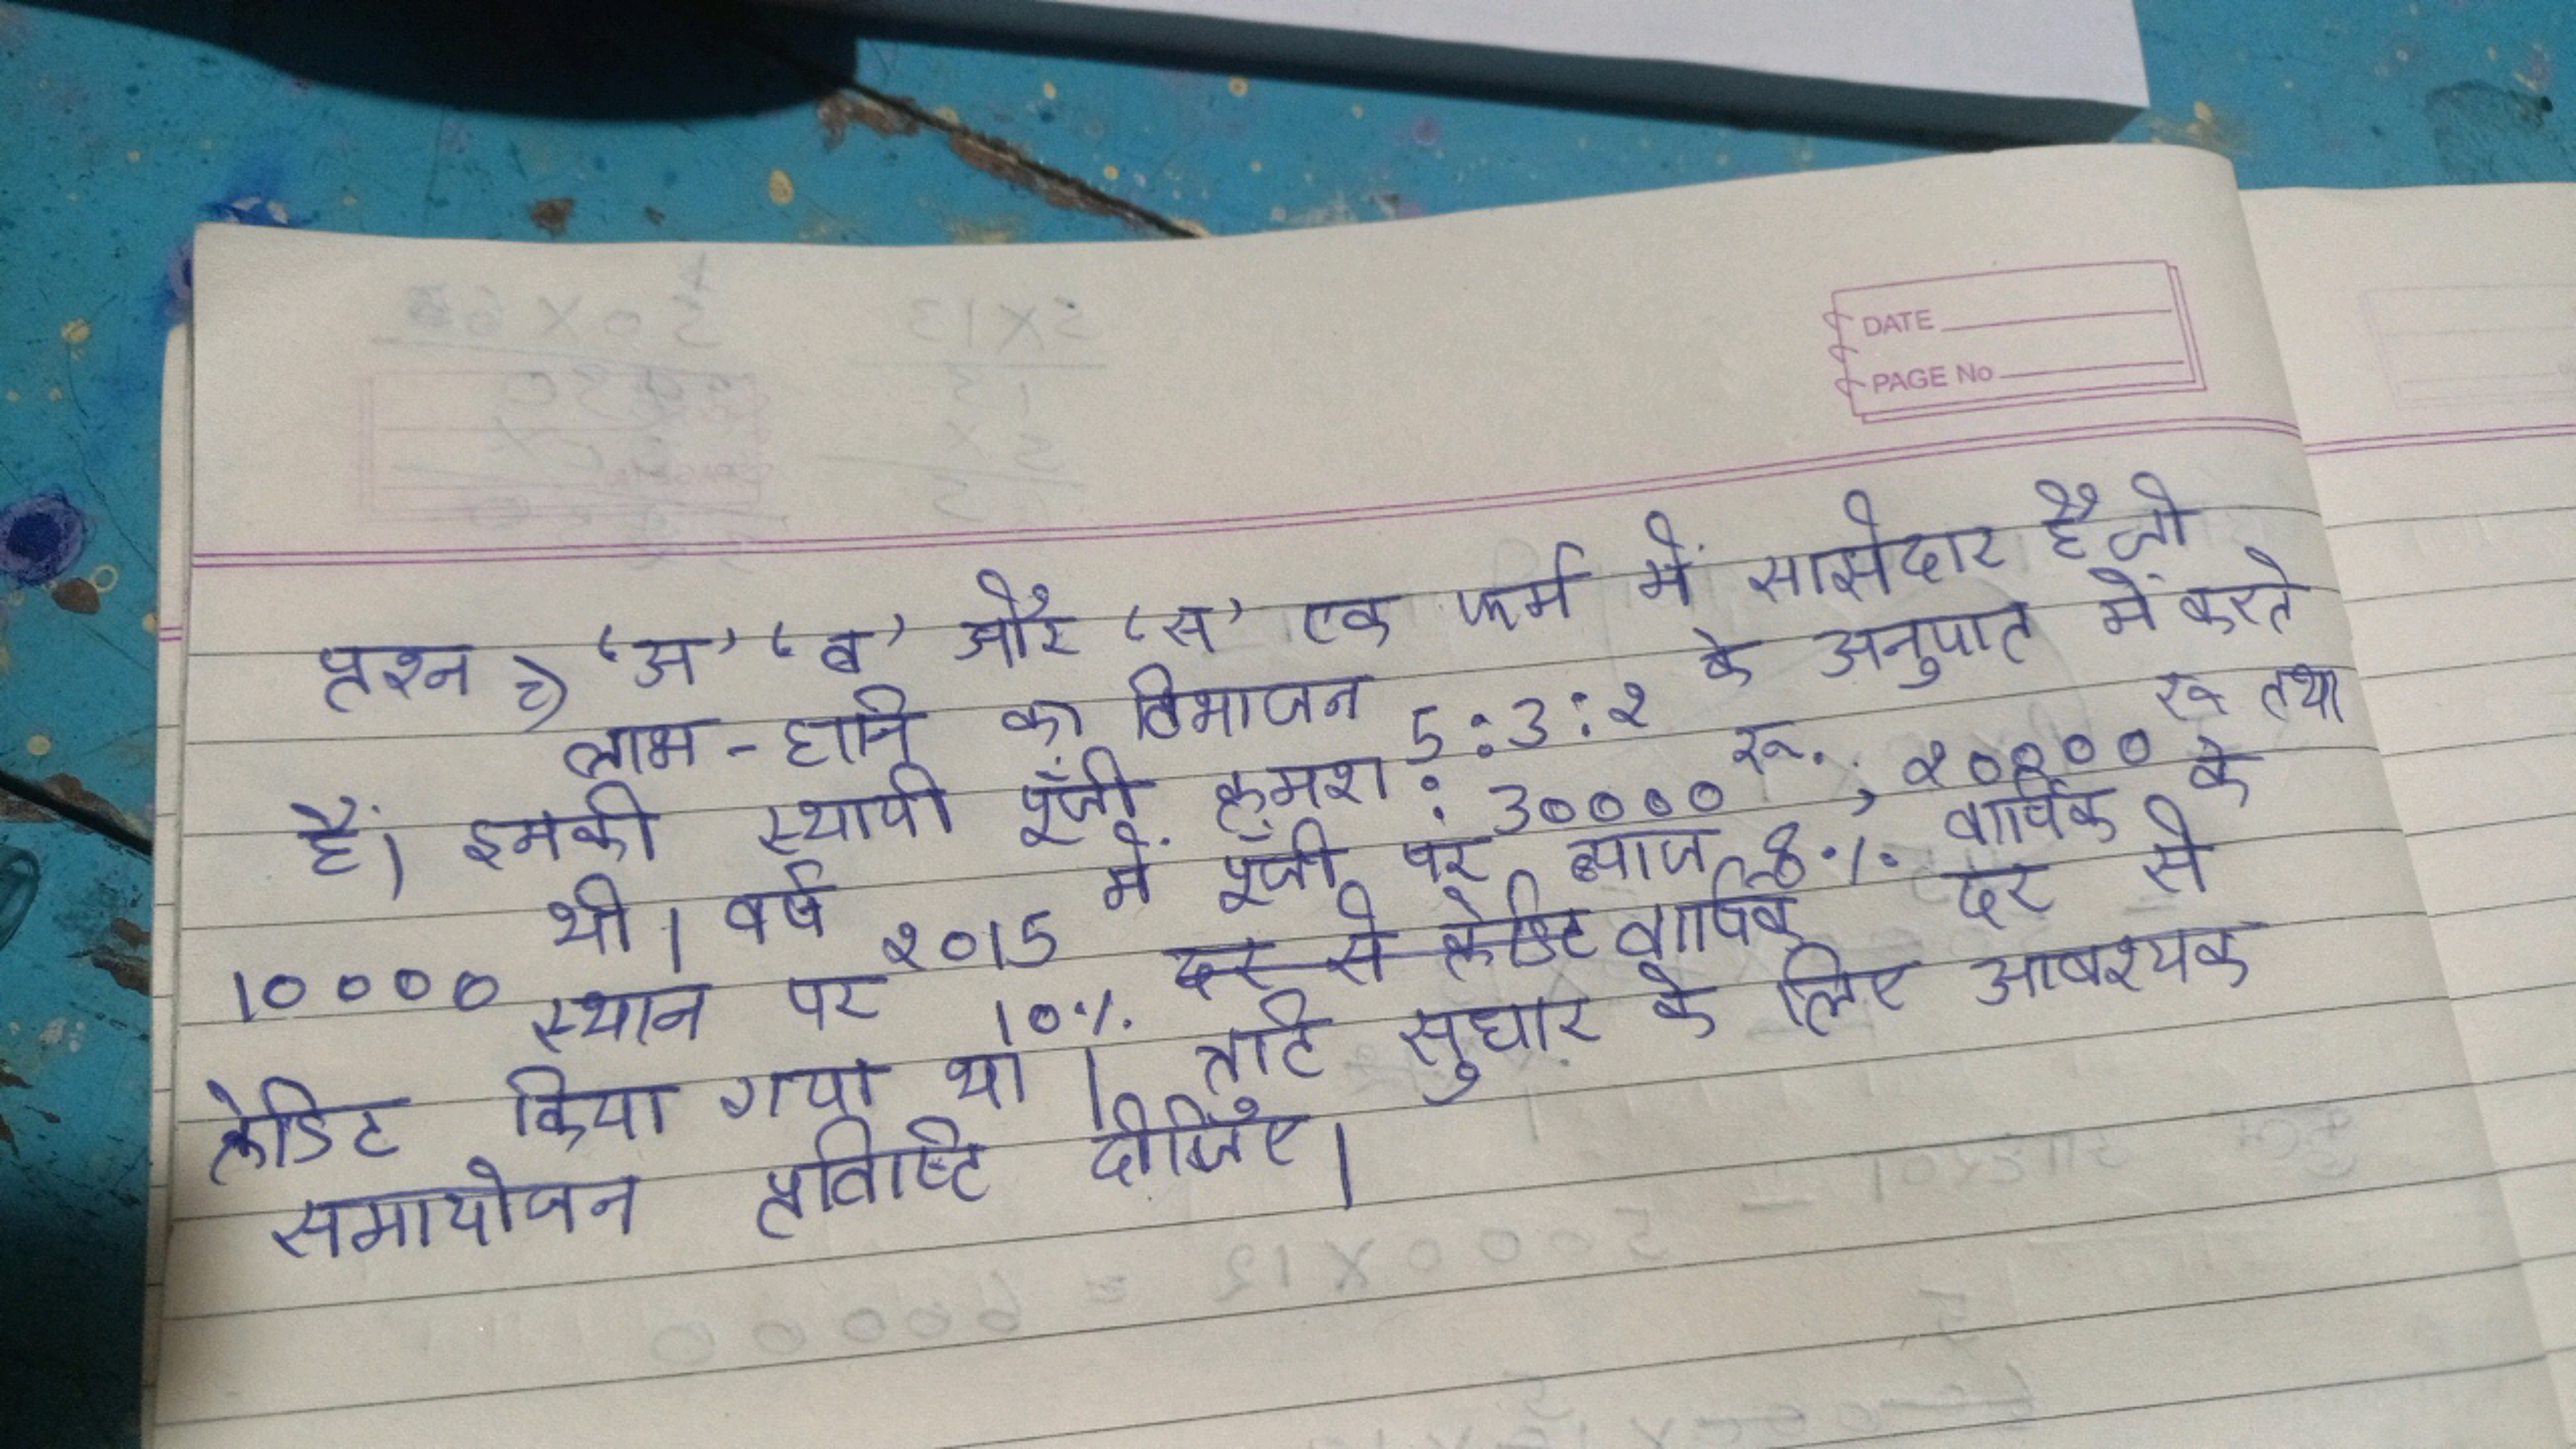 DATE
PAGE No
प्रश्न २) 'अ' 'ब' और 'स' एक फर्म में साझेदार है जो
लाभ - हानि का विभाजन 5:3:२ के अनुपात में करते
हैं। इनकी स्थायी पूँजी क्रमश: 30000 रू., २0000 रू तथा
10000 थी। वर्ष २015 में पूँजी पर ब्याज 8% वार्षिक के
स्थान पर 10% दर से क्रेडिट वार्षिक दर से
क्रेडिट किया गया था। त्रुटि सुधार के लिए आवश्यक
समायोजन प्रविष्टि दीजिए।